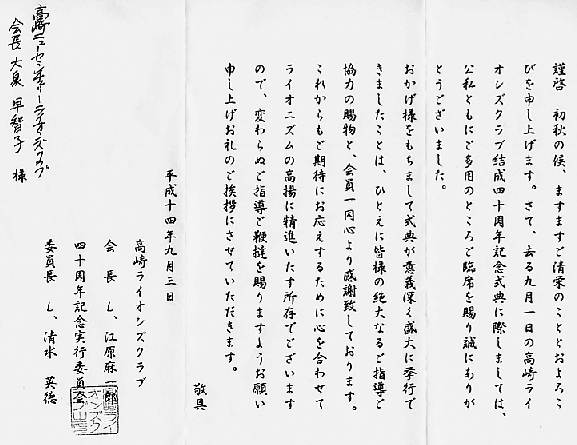 謹啓 初秋の候、ますますご清栄のこととおよろこ
びを申し上げます。さて、去る九月一日の高崎ライ
オンズクラブ結成四十周年記念式典に際しましては、
公私ともにご多用のところご臨席を賜り誠にありが
とうございました。
おかげ様をもちまして式典が意義深く盛大に挙行で
きましたことは、ひとえに皆様の絶大なるご指導と
協力の賜物と、会員一同心より感謝致しております。
これからもご期待にお応えするために心を合わせて
ライオニズムの高揚に精進いたす所存でございます
ので、変わらぬご指導ご鞭撻を賜りますようお願い
申し上げお礼のご挨拶にさせていただきます。
敬具
平成十四年九月三日
高崎ライオンズクラブ
会長 L、江原麻一郎
四十周年記念実行委員会
委員長 L、清水 英徳
高崎ニューセンチュリーライオンズクラブ
会長 大泉 早智子 様